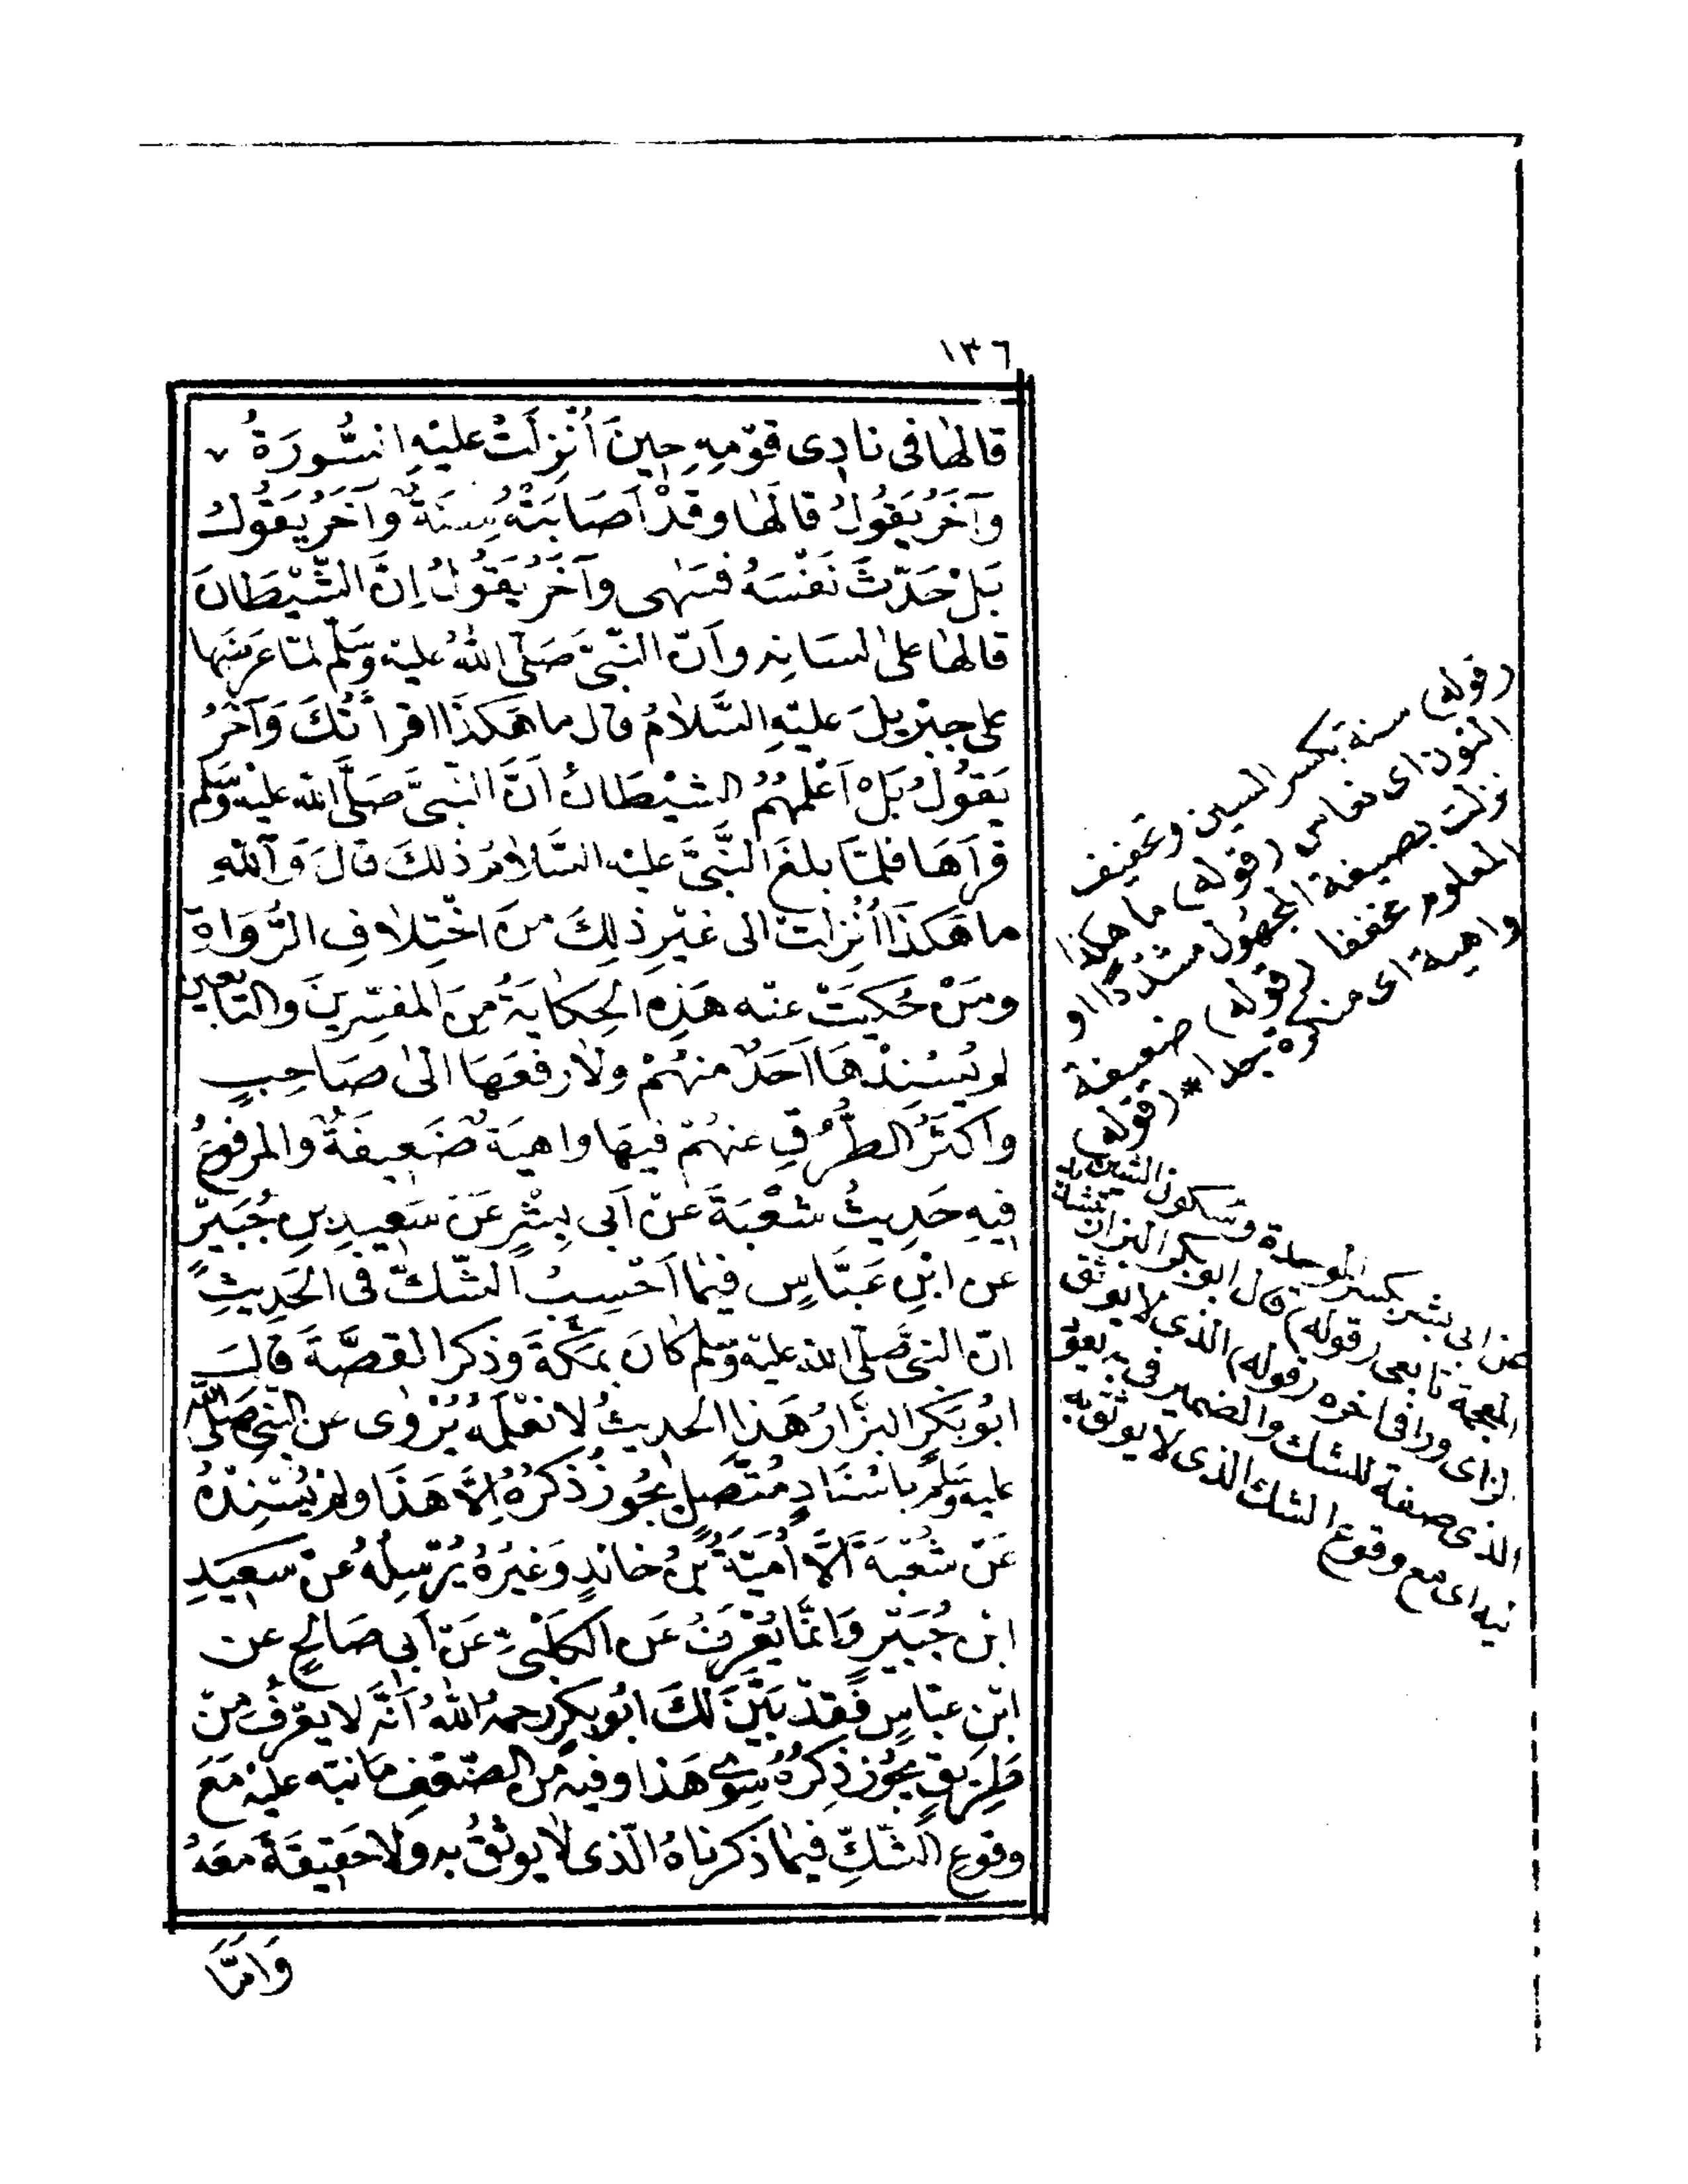 ١٣٦
قَالَهَا فى نَادِى قَوْمِهِ حِينَ اُنْزِلَتْ عَلَيْهِ السُّورَةُ
وَآخَرُ يَقُولُ قَالَهَا وَقَدْ اَصَابَتْهُ سِنَةٌ وَآخَرُ يَقُولُ
بَلْ حَدَّثَ نَفْسَهُ فَسَهٰى وآخَرُ يَقُولُ اِنَّ الشَّيْطَانَ
قَالَهَا عَلىٰ لِسَانِهِ وَاَنَّ النَّبِىَّ صَلَّى اللهُ عَلَيْهِ وَسَلَّمَ لمّا عَرَضَهَا
على جِبْرِيلَ عَلَيْهِ السَّلَامُ قال ما هٰكَذَا اقرأْتُكَ وَآخَرُ
يَقُولُ بَلْ اَعْلَمَهُمُ الشيْطَانُ اَنَّ النَّبِىَّ صَلَّى الله عليهِ وَسَلَّم
قَرَأَهَا فلمّا بلغَ النَّبِىَّ عليه السَّلامُ ذٰلكَ قَالَ وَاللهِ
ما هٰكَذَا اُنْزِلَتْ الى غَيْرِ ذٰلِكَ مِنَ اخْتِلَافِ الرُّوَاةِ
ومَنْ حُكِيَتْ عنْه هَذِهِ الحِكَايَةُ مِنَ المفَسِّرِينَ والتابعين
لم يُسْنِدْهَا اَحَدٌ منهُمْ ولَا رَفَعَهَا الىٰ صَاحِبٍ
واَكْثَرُ الطُّرُقِ عنهُمْ فيهَا واهيَةٌ ضَعِيفَةٌ والمرْفوعُ
فيهِ حَدِيثُ شُعْبَةَ عَنْ اَبى بِشْرٍ عَنْ سَعِيدِ بنِ جُبَيْرٍ
عَنِ ابْنِ عَبَّاسٍ فيمَا اَحْسِبُ الشّكُّ فى الحَدِيثِ
انّ النبىَّ صَلَّى الله عليه وَسَلَّم كَانَ بمَكّةَ وَذكَرَ القِصَّةَ قالَ
ابُو بَكرٍ البزَّارُ هَذا الحديثُ لا نَعْلَمُهُ يُرْوٰى عن النبىّ صَلّى الله
عليه وسَلَّم بِاسْنَادٍ مُتَّصِلٍ يجُوزُ ذِكْرُهُ اِلّا هَذَا ولمْ يُسْنِدْهُ
عَنْ شُعْبَةَ اِلّا اُمَيَّةُ بْنُ خالِدٍ وَغَيْرُهُ يُرْسِلُهُ عَنْ سَعِيدِ
ابْنِ جُبَيْرٍ وَاِنَّمَا يُعْرَفُ عَنِ الكَلْبىِّ عَنْ اَبى صَالحٍ عن
ابْنِ عبّاسٍ فَقدْ بَيَّنَ لَكَ ابُو بكرٍ رحمهُ اللهُ اَنّهُ لا يعْرَفُ مِنْ
طَرِيقٍ يجُوزُ ذِكْرُهُ سِوٰى هَذا وفيهِ مِنَ الضّعْفِ مَا نبّه عليْهِ مَعَ
وقوعِ الشّكِّ فيمَا ذَكَرْنَاهُ الّذى لَا يوثَقُ بهِ وَلَا حَقِيقَةَ مَعَهُ
وَامَّا
(قوله) سنة بكسر السين وتخفيف
النون اى نعاس (قوله) ما هكذا
نزلت بصيغة المجهول مشدّدًا او
المعلوم مخففا (قوله) ضعيفة
واهية اى منكرة جدا * (قوله)
عن ابى بشر بكسر الموحدة وسكون الشين
المعجمة تابعى (قوله) قال ابو بكر البزار
الزاى وراء فى اخره (قوله) الذى لا يوثق
الذى صفة للشك والضمير فى به يعود
فيه اى مع وقوع الشك الذى لا يوثق به